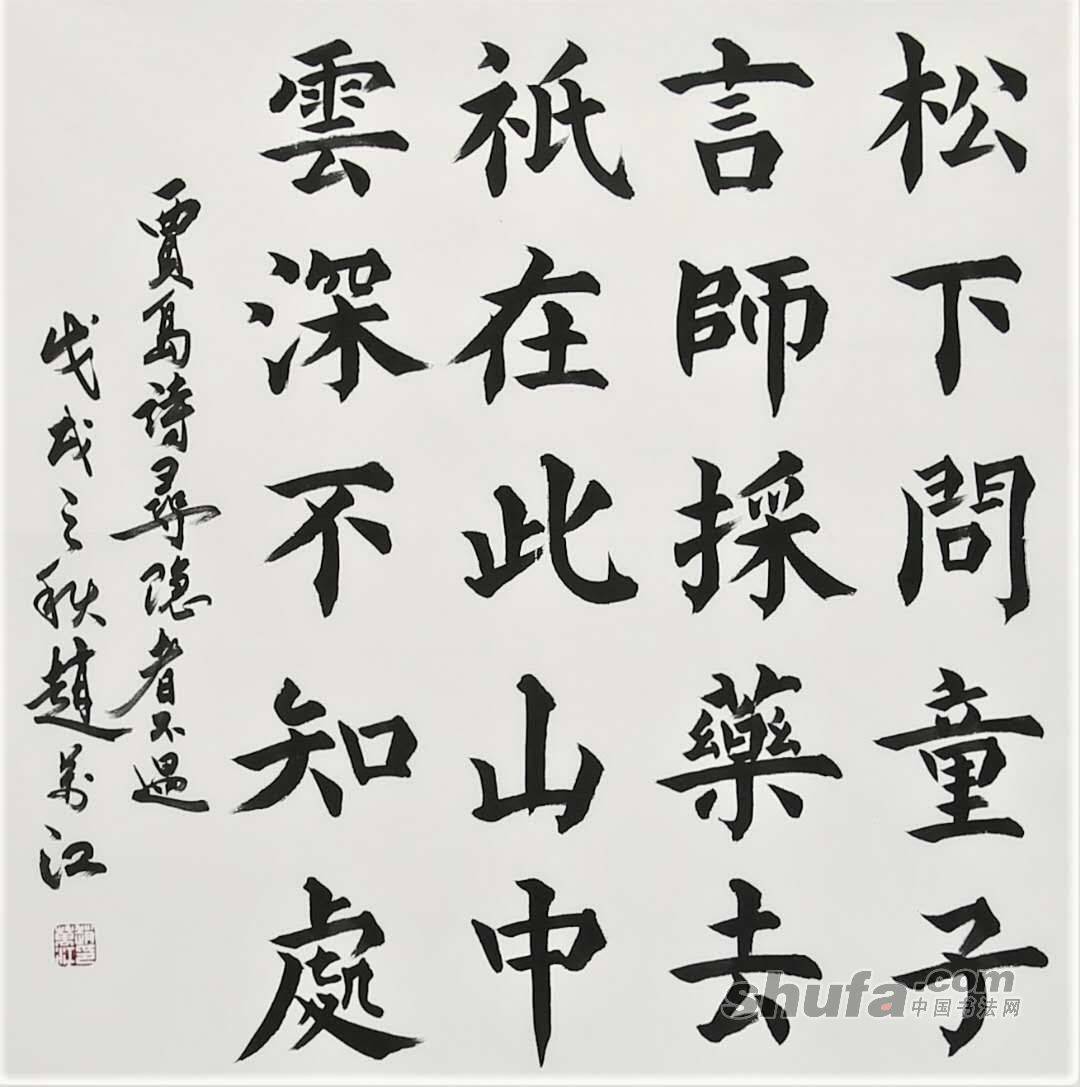 松下問童子
言師採藥去
祇在此山中
雲深不知處
賈島詩尋隐者不遇
戊戌之秋趙万江
shufa.com
中国书法网